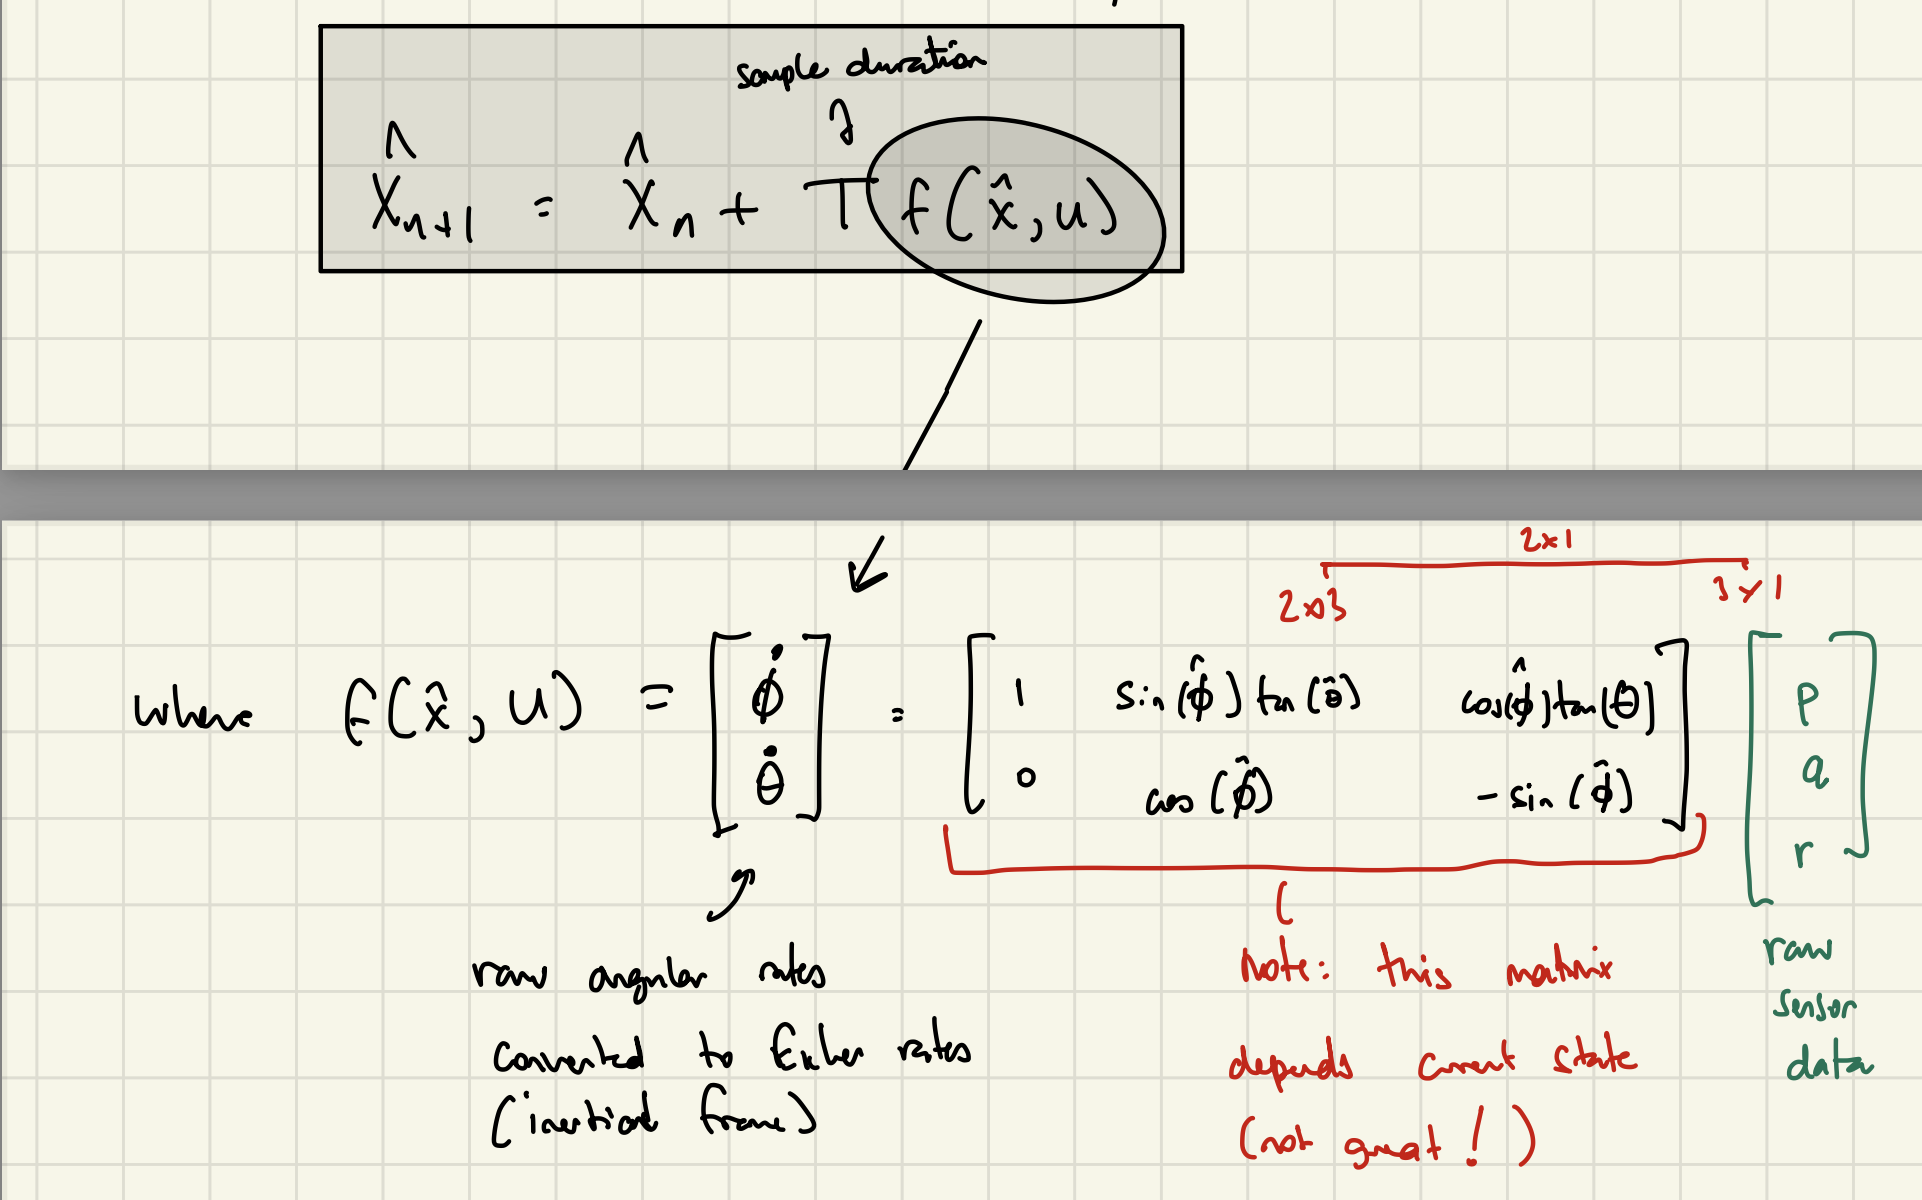 sample duration
x̂ₙ₊₁ = x̂ₙ + T f(x̂, u)
2x1
2x3
3x1
where f(x̂, u) = [ϕ̇ θ̇] = [1 sin(ϕ̂)tan(θ̂) cos(ϕ̂)tan(θ̂) 0 cos(ϕ̂) -sin(ϕ̂)] [p q r]
raw angular rates
converted to Euler rates
(inertial frame)
Note: this matrix
depends current state
(not great!)
raw
sensor
data